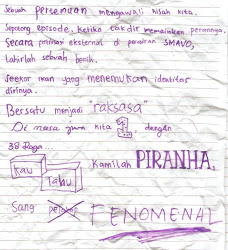 Sebuah pertemuan mengawali kisah kita.
Sepotong episode, ketika takdir memainkan perannya.
Secara potensi eksternal di perairan SMAVO,
Lahirlah sebuah benih.
Seekor ikan yang menemukan identitas
dirinya.
Bersatu menjadi "raksasa"
Di masa kita dengan
38 Raga...
Kau Tahu Kamilah PIRANHA,
Sang FENOMENAL